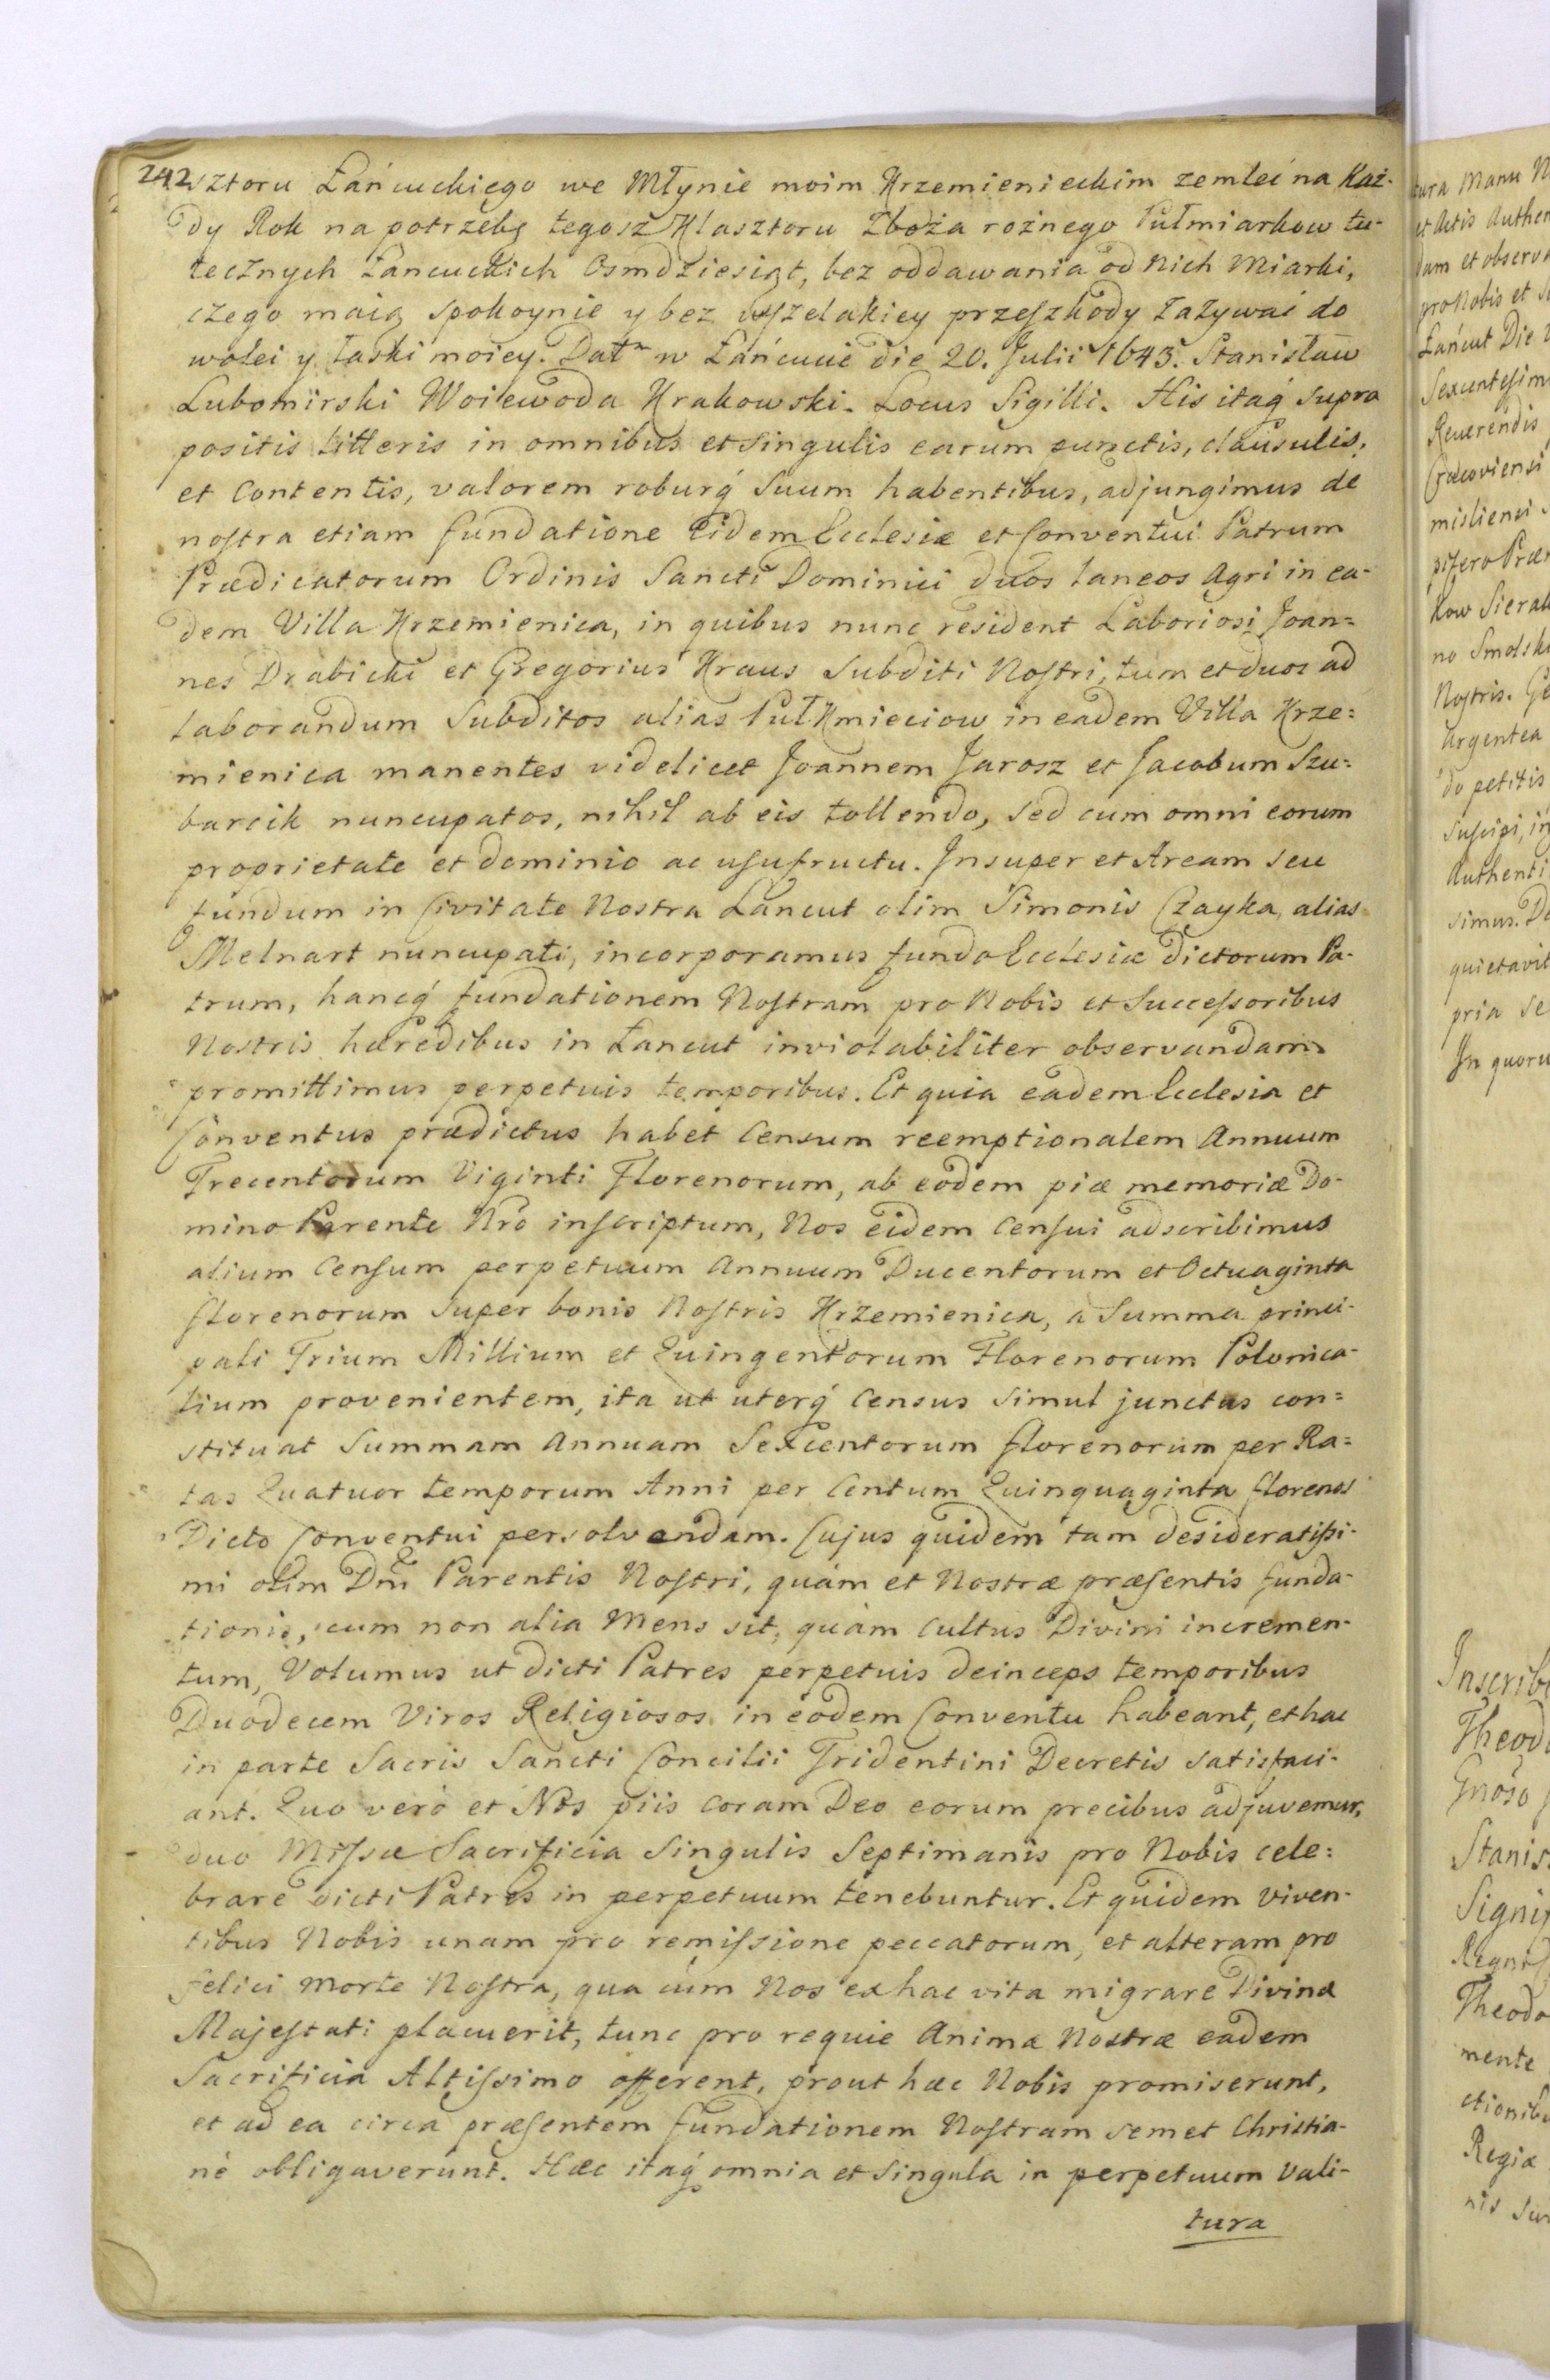 242
wsztoru Łańcuckiego we Młynie moim Krzemienieckim zemleć na Kaz-
dy Rok na potrzebę tegosz Klasztoru Zboża rożnego Pułmiarkow tu-
tecznych Łancuckich Osmdziesiąt, bez oddawania od nich Miarki,
czego maią spokoynie y bez wszelakiey przeszkody zażywać do
wolei y łaski moiey. Datm w Łańcucie die 20. Julii 1643. Stanisław
Lubomirski Woiewoda Krakowski. Locus Sigilli. His itaq́ supra
positis litteris in omnibus et singulis earum punctis, clausulis,
et contentis, valorem roburq́ suum habentibus, adjungimus de
nostra etiam fundatione eidem Ecclesiæ et Conventui Patrum
Prædicatorum Ordinis Sancti Dominici duos laneos Agri in ea-
dem Villa Krzemienica, in quibus nunc resident Laboriosi Joan=
nes Drabicki et Gregorius Kraus Subditi Nostri, tum et duos ad
laborandum Subditos alias Pułkmieciow in eadem Villa Krze=
mienica manentes videlicet Joannem Jarosz et Jacobum Szu=
barcik nuncupatos, nihil ab eis tollendo, sed cum omni eorum
proprietate et dominio ac usufructu. Insuper et Aream seu
fundum in Civitate Nostra Łancut olim Simonis Czayka, alias
Melnart nuncupati, incorporamus fundo Ecclesiæ dictorum Pa-
trum, hancq́ fundationem Nostram pro Nobis et Successoribus
Nostris hæredibus in Łancut inviolabiliter observandam
promittimus perpetuis temporibus. Et quia eadem Ecclesia et
Conventus prædictus habet Censum reemptionalem Annuum
Trecentorum Viginti Florenorum, ab eodem piæ memoriæ Do-
mino Parente Nrõ inscriptum, Nos eidem Censui adscribimus
alium Censum perpetuum Annuum Ducentorum et Octuaginta
florenorum super bonis Nostris Krzemienica, a Summa princi-
pali Trium Millium et Quingentorum Florenorum Polonica-
lium provenientem, ita ut uterq́ Census simul junctus con=
stituat Summam Annuam Sexcentorum florenorum per Ra=
tas Quatuor temporum Anni per Centum Quinquaginta florenos
Dicto Conventui persolvendam. Cujus quidem tam desideratissi-
mi olim Dñi Parentis Nostri, quàm et Nostræ præsentis funda-
tionis, cum non alia Mens sit, quàm Cultus Divini incremen-
tum, Volumus ut dicti Patres perpetuis deinceps temporibus
Duodecem Viros Religiosos in eodem Conventu habeant, et hac
in parte Sacris Sancti Concilii Tridentini Decretis satisfaci-
ant. Quo verò et Nos piis coram Deo eorum precibus adjuvemur,
duo Missæ Sacrificia Singulis Septimanis pro Nobis cele=
brare dicti Patres in perpetuum tenebuntur. Et quidem viven-
tibus Nobis unam pro remissione peccatorum, et alteram pro
felici morte Nostra, qua cùm Nos ex hac vita migrare Divinæ
Majestati placuerit, tunc pro requie Animæ Nostræ eadem
Sacrificia Altissimo offerent, prout hæc Nobis promiserunt,
et ad ea circa præsentem fundationem Nostram semet Christia-
nè obligaverunt. Hæc itaq́ omnia et singula in perpetuum vali-
tura
tura Manu
et Actis Authen
dam et observ
pro Nobis et
Łańcut Die
Sexcentesim
Reverendis
Cracoviensi
misliensi
pifero Præ
kow Sierak
no Smolsk
Nostris.
argentea
do petitis
suscipi, in
Authenti
simus.
quietavit
pria se
In quoru
Inscrib
Theod
Gnoso
Stanis
Signi
Regni
Theodo
mente
ctionib
Regiæ
nis su